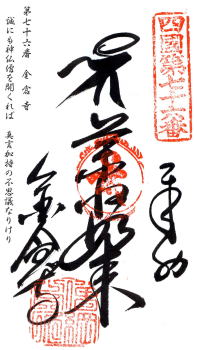 四國第七十六番
奉納
薬師如来
金倉寺
第七十六番　金倉寺
誠にも神仏僧を開くれば
真言加持の不思議なりけり